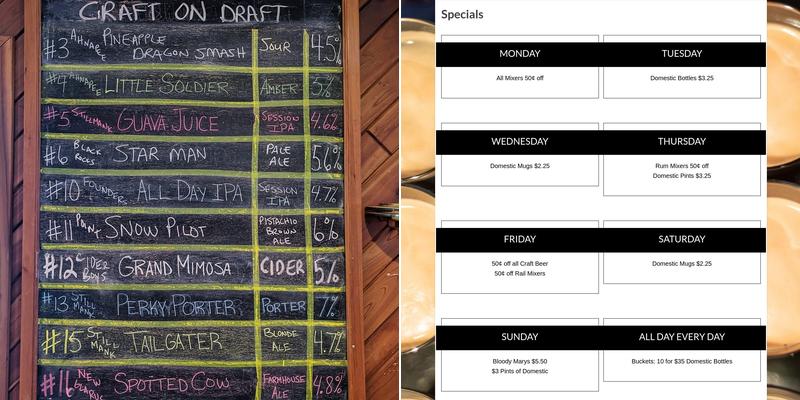 CRAFT ON DRAFT
#3 AHNAPEE PINEAPPLE DRAGON SMASH SOUR 4.5%
#4 AHNAPEE LITTLE SOLDIER AMBER 5%
#5 STILLMANK GUAVA JUICE SESSION IPA 4.6%
#6 BLACK ROCKS STAR MAN PALE ALE 5.6%
#10 FOUNDERS ALL DAY IPA SESSION IPA 4.7%
#11 POINT SNOW PILOT PISTACHIO BROWN ALE 6%
#12 CIDER BOYS GRAND MIMOSA CIDER 5%
#13 STILLMANK PERKY PORTER PORTER 7%
#15 STILLMANK TAILGATER BLONDE ALE 4.7%
#16 NEW GLARUS SPOTTED COW FARMHOUSE ALE 4.8%
Specials
MONDAY
All Mixers 50¢ off
TUESDAY
Domestic Bottles $3.25
WEDNESDAY
Domestic Mugs $2.25
THURSDAY
Rum Mixers 50¢ off
Domestic Pints $3.25
FRIDAY
50¢ off all Craft Beer
50¢ off Rail Mixers
SATURDAY
Domestic Mugs $2.25
SUNDAY
Bloody Marys $5.50
$3 Pints of Domestic
ALL DAY EVERY DAY
Buckets: 10 for $35 Domestic Bottles